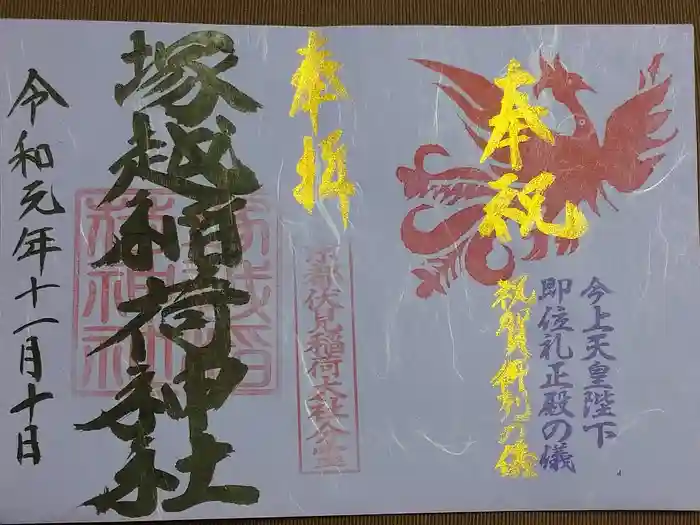 奉祝
今上天皇陛下
即位礼正殿の儀
祝賀御列の儀
奉拝
京都伏見稲荷大社分霊
塚越稲荷神社
令和元年十一月十日